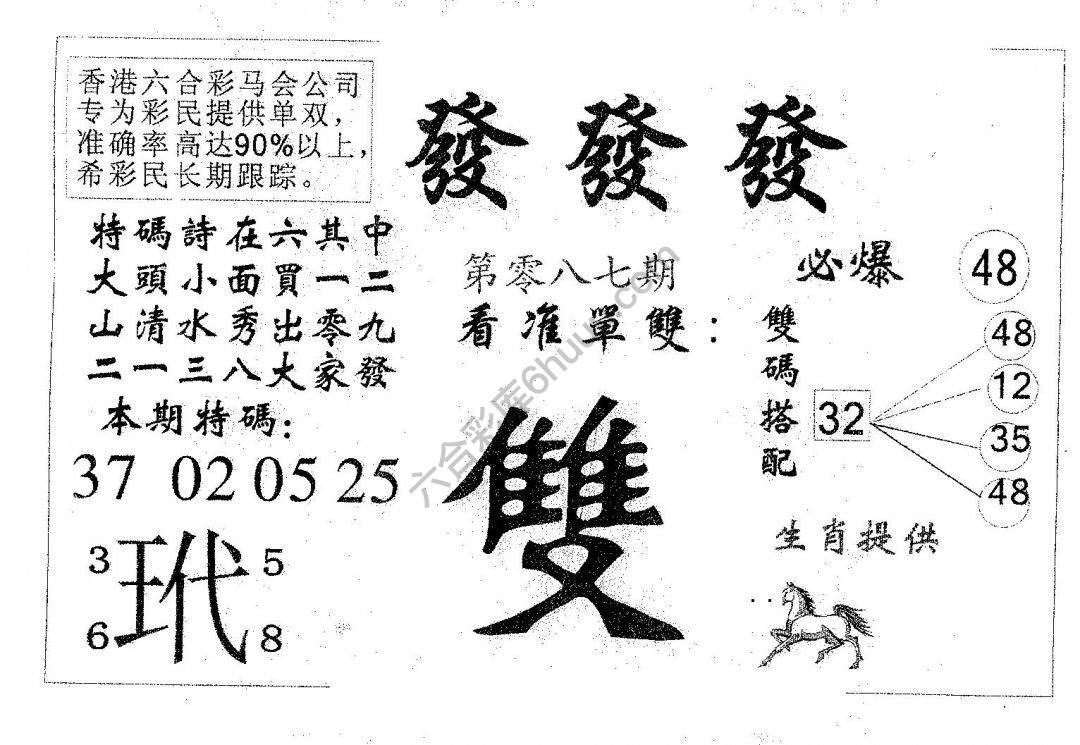 香港六合彩马会公司
专为彩民提供单双，
准确率高达90%以上，
希彩民长期跟踪。
發 發 發
特碼詩在六其中
大頭小面買一二
山清水秀出零九
二一三八大家發
本期特碼：
37 02 05 25
3 玳 5
6 8
第零八七期
看准單雙：
雙
必爆 48
雙碼搭配
32
48
12
35
48
生肖提供
六合彩库6huu.com